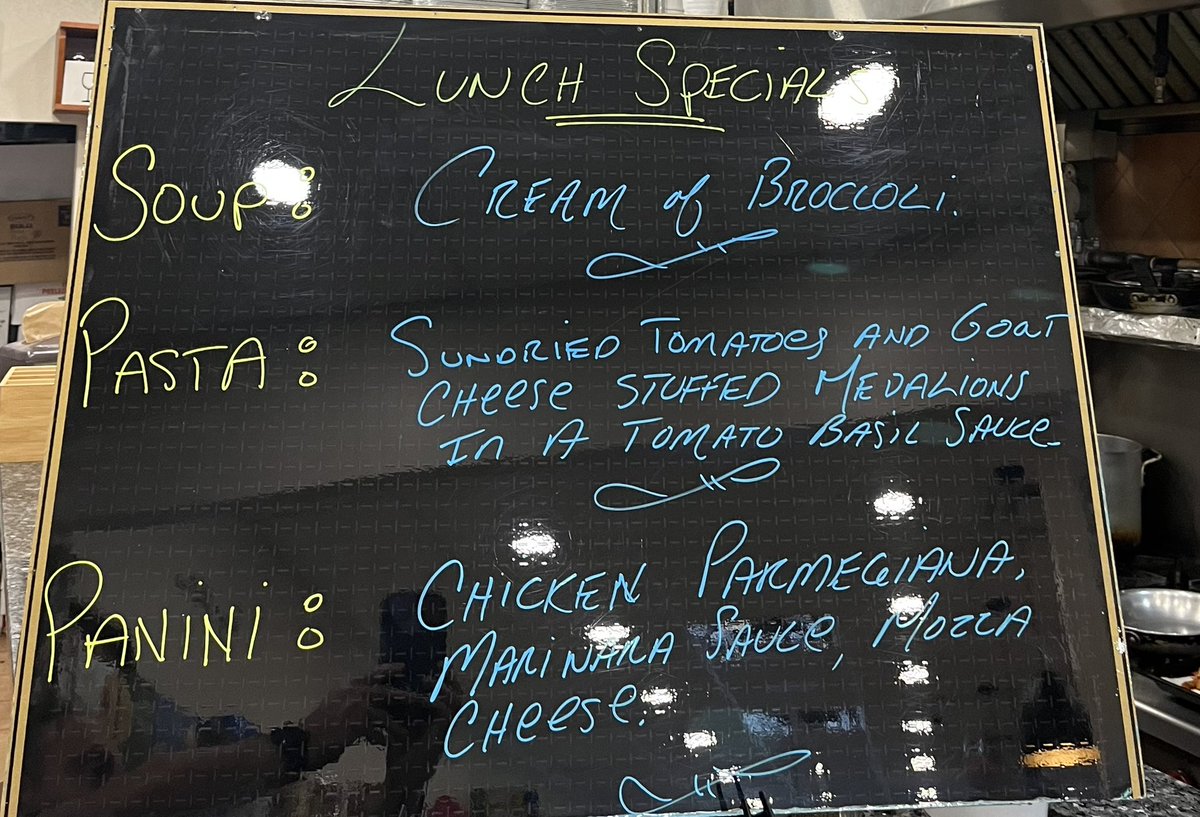 Lunch Specials
Soup: Cream of Broccoli.
Pasta: Sundried Tomatoes and Goat
Cheese Stuffed Medalions
In A Tomato Basil Sauce
Panini: Chicken Parmegiana,
Marinara Sauce, Mozza
Cheese.